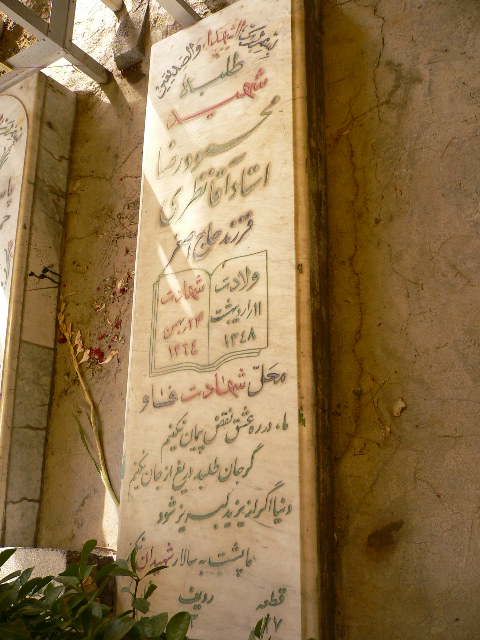 بسم رب الشهداء والصدیقین
طلبه
شهید
محمودرضا
استاد آقا نظری
فرزند حاج اصغر
ولادت
۱۱ اردیبهشت
۱۳۴۸
شهادت
۲۴ بهمن
۱۳۶۴
محل شهادت فاو
ما در ره عشق نقض پیمان نکنیم
گر جان طلبد دریغ از جان نکنیم
دنیا اگر از یزید لبریز شود
ما پشت به سالار شهیدان
قطعه
ردیف